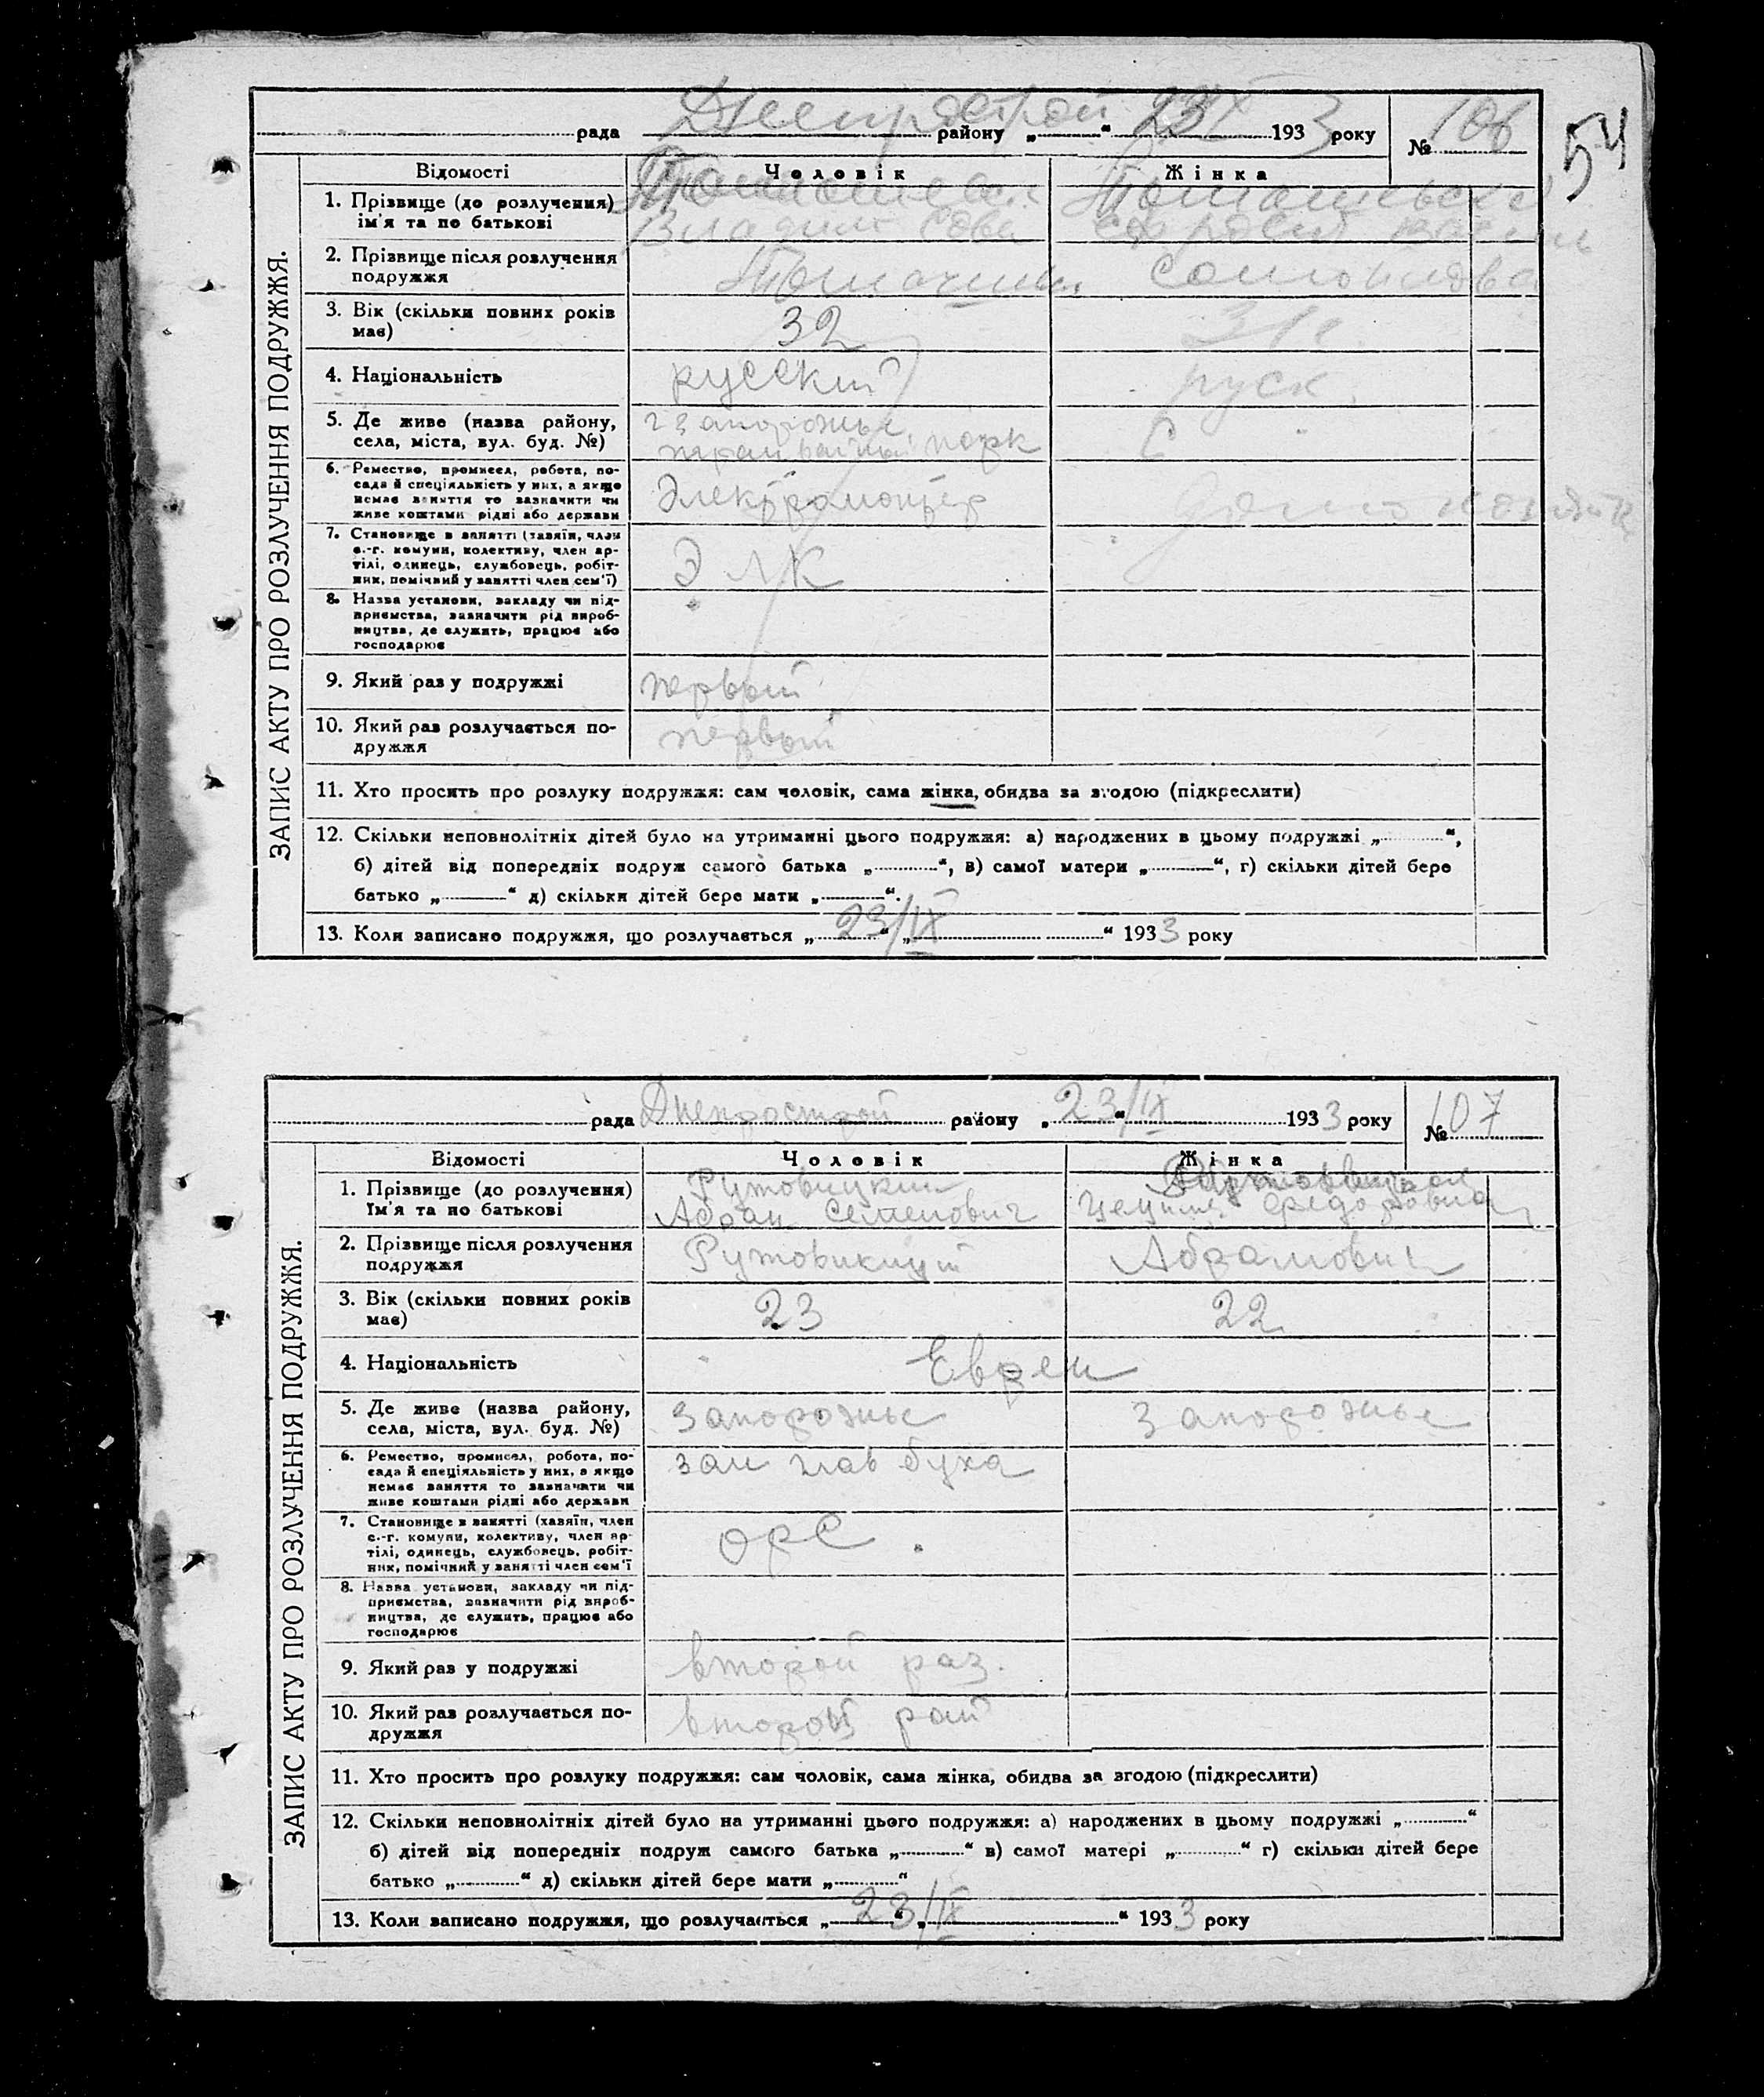 54
рада Днепрострой району „ “ 23 IX 1933 року № 106
ЗАПИС АКТУ ПРО РОЗЛУЧЕННЯ ПОДРУЖЖЯ.
Відомості Чоловік Жінка
1. Прізвище (до розлучення)
ім'я та по батькові
2. Прізвище після розлучення
подружжя
3. Вік (скільки повних років 32 31 г.
має)
4. Національність русский руск.
5. Де живе (назва району, г Запорожье
села, міста, вул. буд. №) трамвайный парк
6. Ремество, промисел, робота, по-
сада й спеціяльність у них, а якщо Электромонтер
немає заняття то зазначити чи
живе коштами рідні або держави
7. Становище в занятті (хазяїн, член
с.-г. комуни, колективу, член ар- Э Л К
тілі, одинець, службовець, робіт-
ник, помічний у занятті член сем'ї)
8. Назва установи, закладу чи під-
приємства, зазначити рід вироб-
ництва, де служить, працює або
господарює
9. Який раз у подружжі первый
10. Який раз розлучається по- первый
дружжя
11. Хто просить про розлуку подружжя: сам чоловік, сама жінка, обидва за згодою (підкреслити)
12. Скільки неповнолітніх дітей було на утриманні цього подружжя: а) народжених в цьому подружжі „ “,
б) дітей від попередніх подруж самого батька „ “, в) самої матери „ “, г) скільки дітей бере
батько „ “ д) скільки дітей бере мати „ “.
13. Коли записано подружжя, що розлучається „ 23/IX “ „ “ 1933 року
рада Днепрострой району „ 23/IX “ 1933 року № 107
ЗАПИС АКТУ ПРО РОЗЛУЧЕННЯ ПОДРУЖЖЯ.
Відомості Чоловік Жінка
1. Прізвище (до розлучення) Рутовицкий
Ім'я та по батькові Абрам Семенович
2. Прізвище після розлучення Абрамович
подружжя
3. Вік (скільки повних років 23 22
має)
4. Національність Евреи
5. Де живе (назва району, Запорожье Запорожье
села, міста, вул. буд. №)
6. Ремество, промисел, робота, по- зам глав буха
сада й спеціяльність у них, а якщо
немає заняття то зазначити чи
живе коштами рідні або держави
7. Становище в занятті (хазяїн, член
с.-г. комуни, колективу, член ар- ОРС
тілі, одинець, службовець, робіт-
ник, помічний у занятті член сем'ї
8. Назва установи, закладу чи під-
приємства, зазначити рід вироб-
ництва, де служить, працює або
господарює
9. Який раз у подружжі второй раз.
10. Який раз розлучається по- второй
дружжя
11. Хто просить про розлуку подружжя: сам чоловік, сама жінка, обидва за згодою (підкреслити)
12. Скільки неповнолітніх дітей було на утриманні цього подружжя: а) народжених в цьому подружжі „ “
б) дітей від попередніх подруж самого батька „ “ в) самої матері „ “ г) скільки дітей бере
батько „ “ д) скільки дітей бере мати „ “
13. Коли записано подружжя, що розлучається „ 23/IX “ „ “ 1933 року